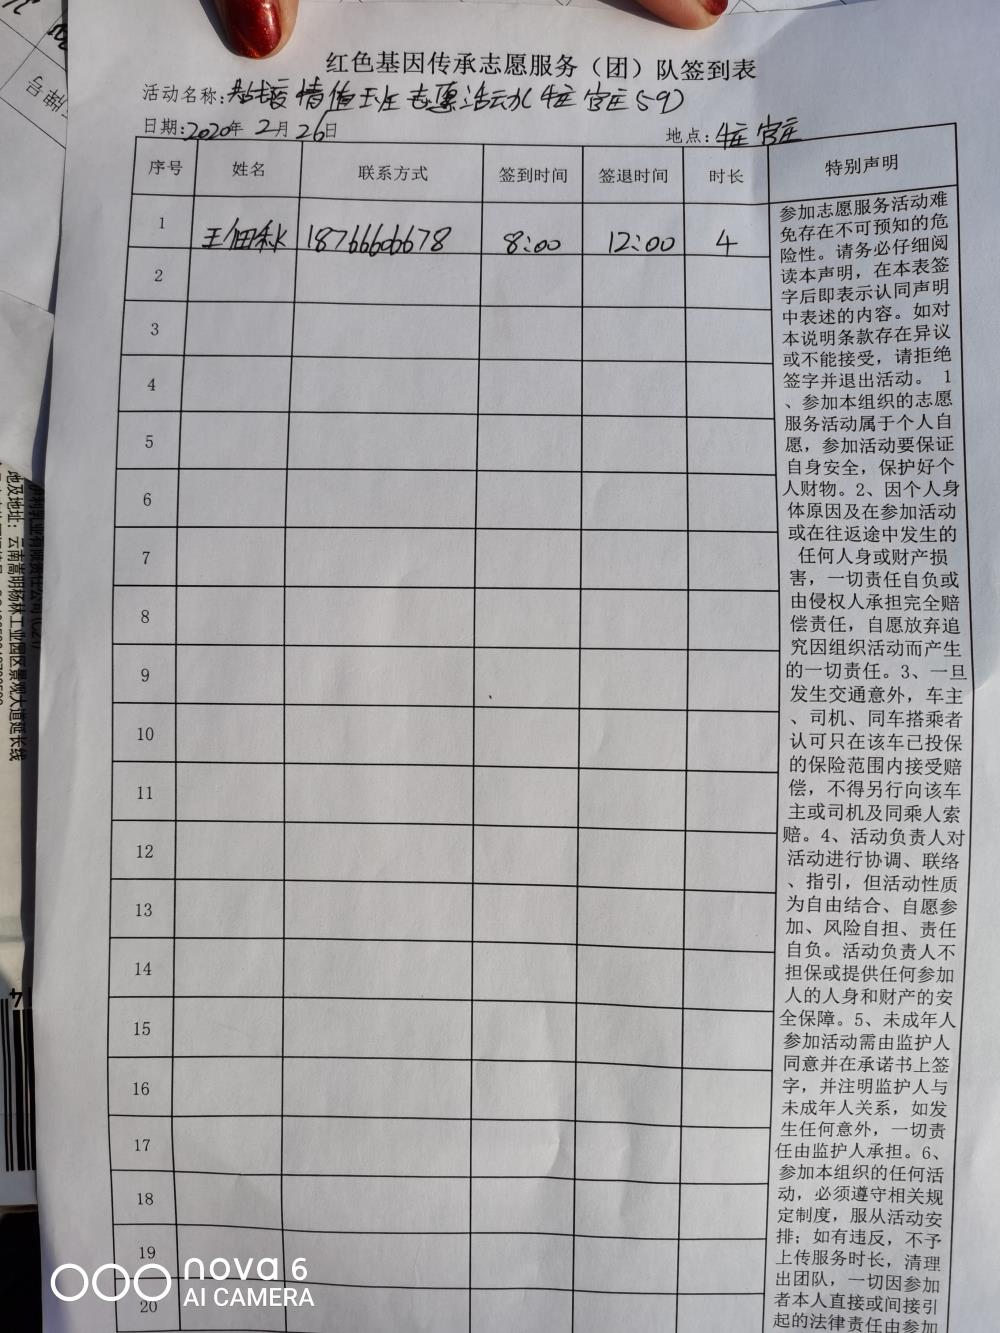 红色基因传承志愿服务（团）队签到表
活动名称:战疫情值班志愿活动(牛庄官庄59)
日期:2020年2月26日
地点:牛庄官庄
序号 姓名 联系方式 签到时间 签退时间 时长 特别声明
1 王佃秋 18766606678 8:00 12:00 4
2
3
4
5
6
7
8
9
10
11
12
13
14
15
16
17
18
19
20
参加志愿服务活动难
免存在不可预知的危
险性。请务必仔细阅
读本声明，在本表签
字后即表示认同声明
中表述的内容。如对
本说明条款存在异议
或不能接受，请拒绝
签字并退出活动。 1
、参加本组织的志愿
服务活动属于个人自
愿，参加活动要保证
自身安全，保护好个
人财物。2、因个人身
体原因及在参加活动
或在往返途中发生的
任何人身或财产损
害，一切责任自负或
由侵权人承担完全赔
偿责任，自愿放弃追
究因组织活动而产生
的一切责任。3、一旦
发生交通意外，车主
、司机、同车搭乘者
认可只在该车已投保
的保险范围内接受赔
偿，不得另行向该车
主或司机及同乘人索
赔。4、活动负责人对
活动进行协调、联络
、指引，但活动性质
为自由结合、自愿参
加、风险自担、责任
自负。活动负责人不
担保或提供任何参加
人的人身和财产的安
全保障。5、未成年人
参加活动需由监护人
同意并在承诺书上签
字，并注明监护人与
未成年人关系，如发
生任何意外，一切责
任由监护人承担。6、
参加本组织的任何活
动，必须遵守相关规
定制度，服从活动安
排；如有违反，不予
上传服务时长，清理
出团队，一切因参加
者本人直接或间接引
起的法律责任由参加
牌号
地及地址：云南嵩明杨林工业园区景观大道延长线
nova 6
AI CAMERA